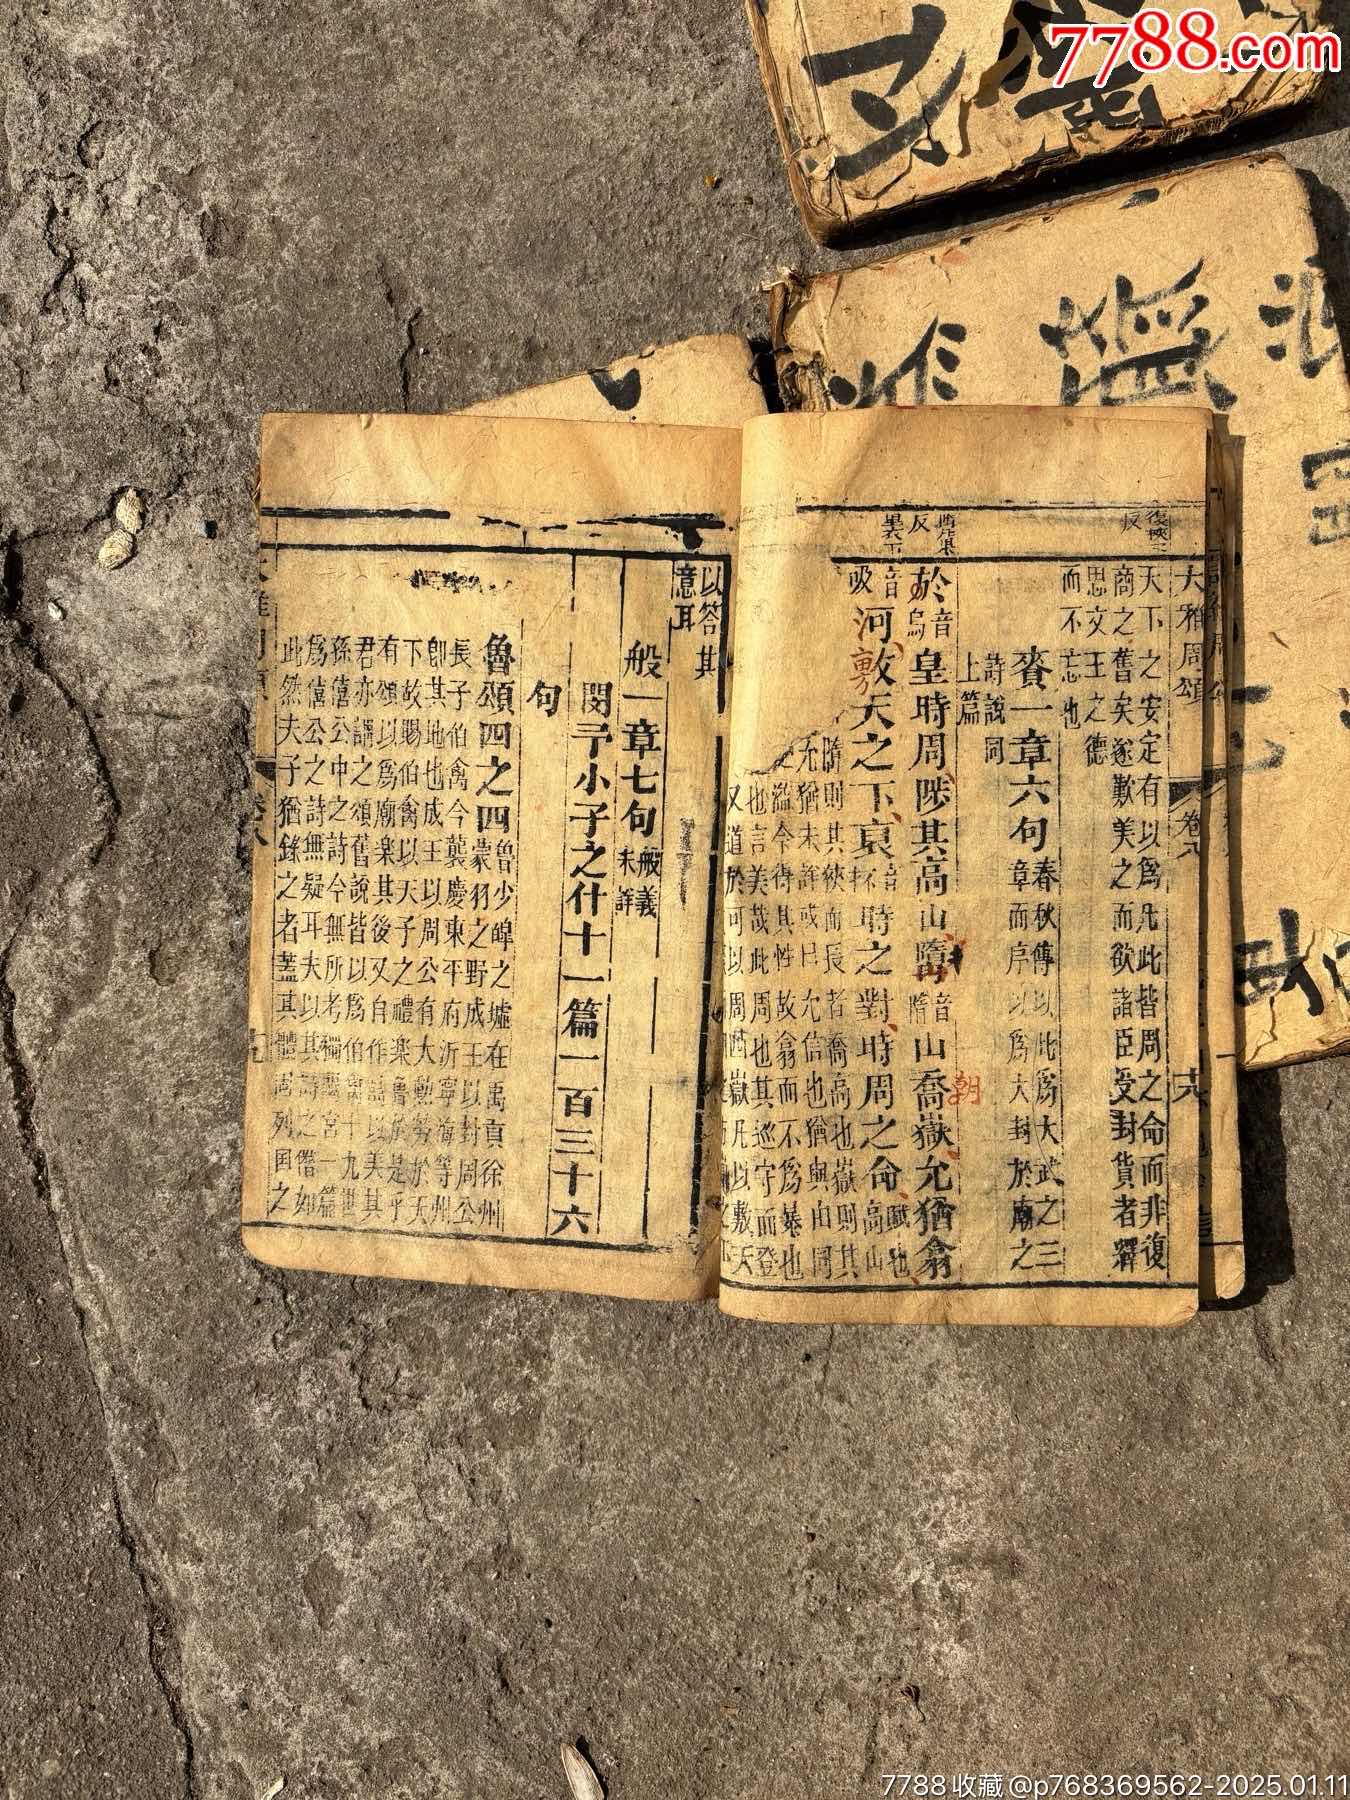 7788.com
天下之安定有以爲凡此皆周之命而非復
商之舊矣遂歎美之而欲諸臣受封賞者繹
思文王之德
而不忘也
賚一章六句
春秋傳以此爲大武之三
章而序以爲大封於廟之
詩說同
上篇
於音烏皇時周陟其高山嶞音隋山喬嶽允猶翕
音吸河敷天之下裒時之對時周之命賦也高山
嶞則其狹而長者喬高也嶽則其
允猶未詳或曰允信也猶與由同
溢今得其性故翕而不爲暴也
也言美哉此周也其巡守而登
又道於河以周四嶽凡以敷天
朝
大雅周頌
卷八
以答其
意耳
般一章七句
般義
未詳
閔予小子之什十一篇一百三十六
句
魯頌四之四
魯少皞之墟在禹貢徐州
蒙羽之野成王以封周公
長子伯禽今襲慶東平府沂寧海等州
卽其地也成王以周公有大勳勞於天
下故賜伯禽以天子之禮樂魯於是乎
有頌以爲廟樂其後又自作詩以美其
君亦謂之頌舊說皆以爲伯禽十九世
孫僖公中之詩今無所考獨閟宮一篇
爲僖公之詩無疑耳夫以其詩之僭如
此然夫子猶錄之者蓋其體周列國之
卷八
十九
7788收藏@p768369562-2025.01.11